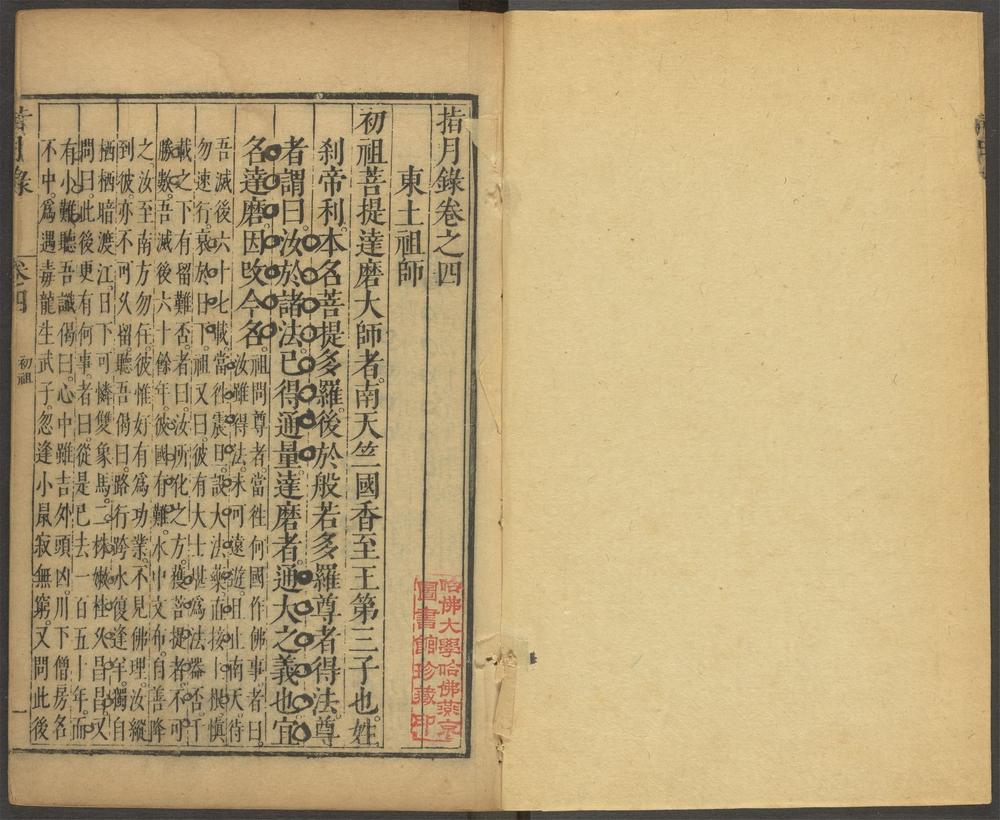 指月錄卷之四
東土祖師
初祖菩提達磨大師者南天竺國香至王第三子也姓
剎帝利本名菩提多羅後於般若多羅尊者得法尊
者謂曰汝於諸法已得通量達磨者通大之義也宜
名達磨因改今名
祖問尊者當往何國作佛事者曰
汝雖得法未可遠遊且止南天待
吾滅後六十七載當往震旦設大法藥直接上根慎
勿速行衰於日下祖又曰彼有大士堪為法器否千
載之下有留難否者曰汝所化之方獲菩提者不可
勝數吾滅後六十餘年彼國有難水中文布自善降
之汝至南方勿住彼惟好有爲功業不見佛理汝縱
到彼亦不可久留聽吾偈曰路行跨水復逢羊獨自
栖栖暗渡江日下可憐雙象馬二株嫩桂久昌昌又
問曰此後更有何事者曰從是已去一百五十年而
有小難聽吾讖偈曰心中雖吉外頭凶川下僧房名
不中爲遇毒龍生武子忽逢小鼠寂無窮又問此後
指月錄
卷四
初祖
一
哈佛大學哈佛燕京
圖書館珍藏印